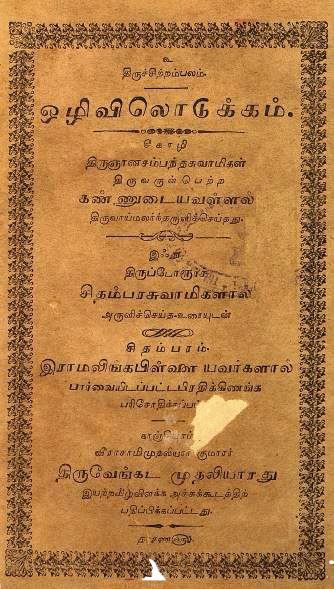 உ
திருச்சிற்றம்பலம்.
ஒழிவிலொடுக்கம்.
சீகாழி
திருஞானசம்பந்தசுவாமிகள்
திருவருள்பெற்ற
கண்ணுடையவள்ளல்
திருவாய்மலர்ந்தருளிச்செய்தது.
இஃது
திருப்போரூர்ச்
சிதம்பரசுவாமிகளால்
அருளிச்செய்த உரையுடன்
சிதம்பரம்.
இராமலிங்கபிள்ளை யவர்களால்
பார்வையிடப்பட்டபிரதிக்கிணங்க
பரிசோதிக்கப்
வீராசாமிமுதலியார் குமாரர்
திருவேங்கட முதலியாரது
இயற்றமிழ்விளக்க அச்சுக்கூடத்திற்
பதிப்பிக்கப்பட்டது.